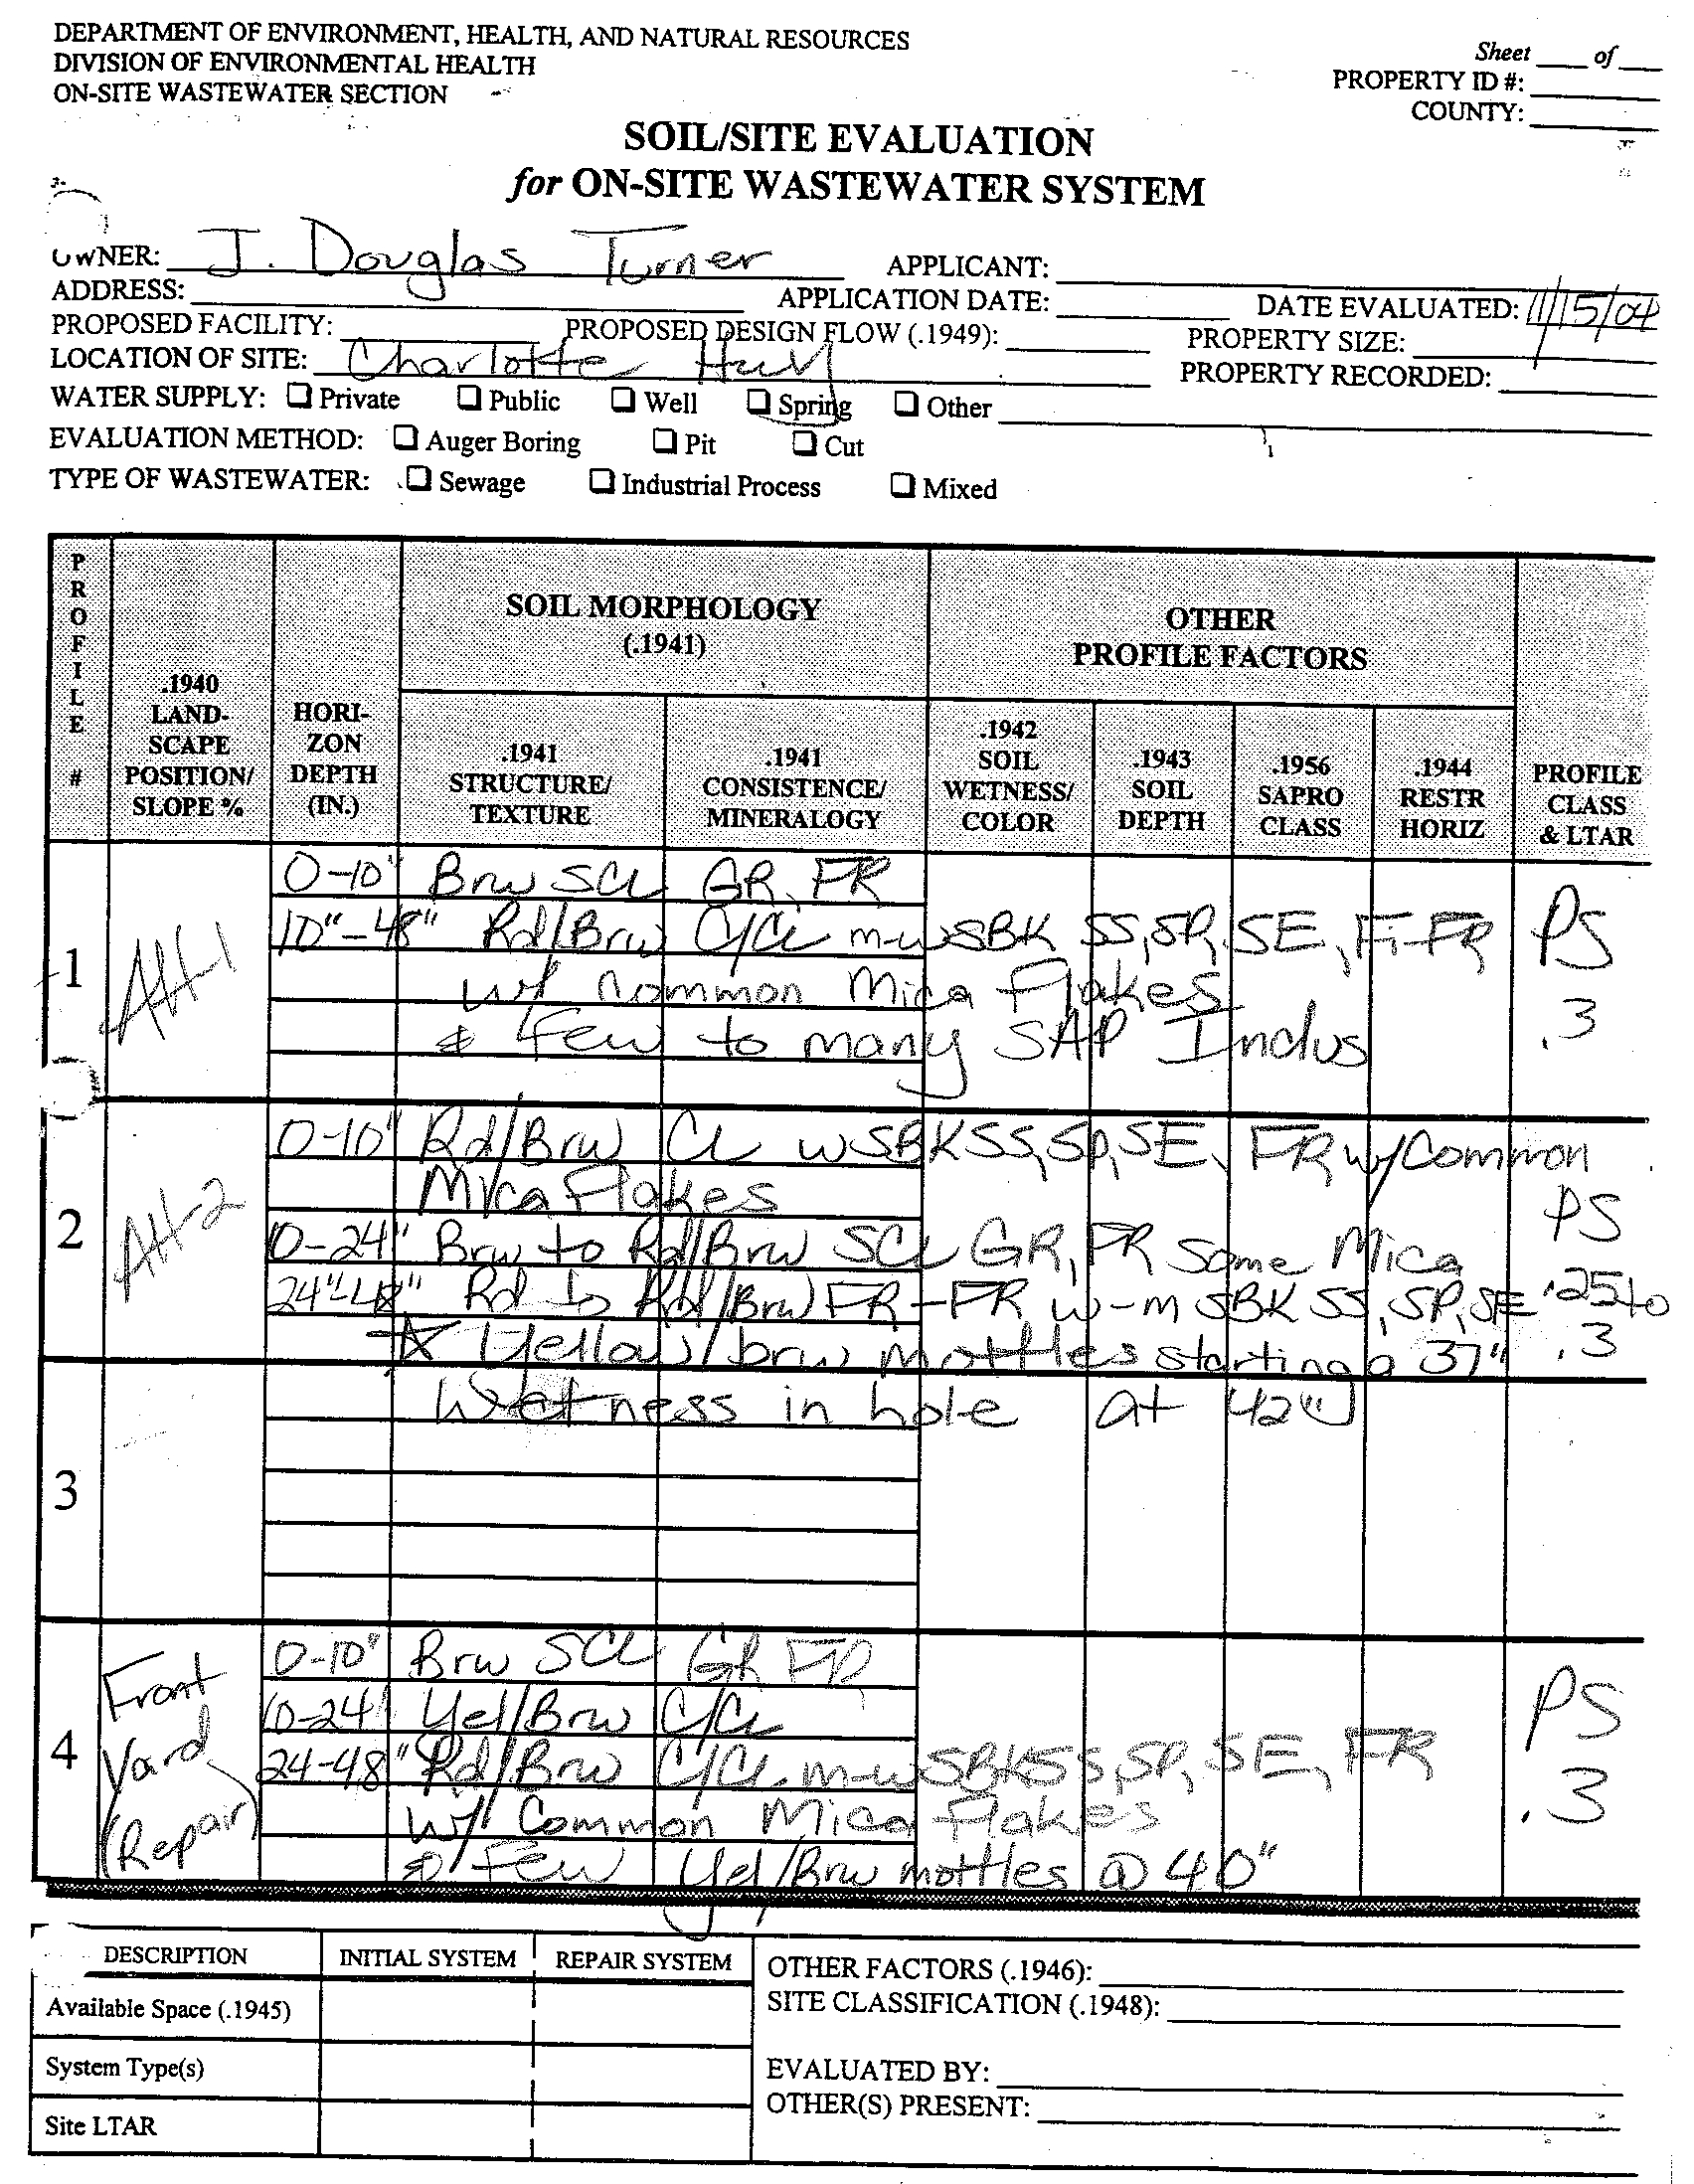 DEPARTMENT OF ENVIRONMENT, HEALTH, AND NATURAL RESOURCES
DIVISION OF ENVIRONMENTAL HEALTH
ON-SITE WASTEWATER SECTION
Sheet ___ of ___
PROPERTY ID #:
COUNTY:
SOIL/SITE EVALUATION
for ON-SITE WASTEWATER SYSTEM
OWNER: J. Douglas Turner APPLICANT:
ADDRESS: APPLICATION DATE: DATE EVALUATED: 11/15/04
PROPOSED FACILITY: PROPOSED DESIGN FLOW (.1949): PROPERTY SIZE:
LOCATION OF SITE: Charlotte PROPERTY RECORDED:
WATER SUPPLY: ❑ Private ❑ Public ❑ Well ❑ Spring ❑ Other
EVALUATION METHOD: ❑ Auger Boring ❑ Pit ❑ Cut
TYPE OF WASTEWATER: ❑ Sewage ❑ Industrial Process ❑ Mixed
PROFILE #
.1940 LAND-SCAPE POSITION/ SLOPE %
HORI-ZON DEPTH (IN.)
SOIL MORPHOLOGY (.1941)
.1941 STRUCTURE/ TEXTURE
.1941 CONSISTENCE/ MINERALOGY
OTHER PROFILE FACTORS
.1942 SOIL WETNESS/ COLOR
.1943 SOIL DEPTH
.1956 SAPRO CLASS
.1944 RESTR HORIZ
PROFILE CLASS & LTAR
1 AH-1
0-10" Brw SCL GR, FR
10"-48" Rd/Brw C/CL m-wSBK SS, SP, SE, Fi-FR PS
w/ common Mica Flakes
& Few to many SAP Inclus .3
2 AH-2
0-10" Rd/Brw CL wSBK SS, SP, SE, FR w/Common
Mica Flakes PS
0-24" Brw to Rd/Brw SCL GR, FR Some Mica
24"-48" Rd to Rd/Brw FR-FR w-m SBK SS, SP, SE .25 to .3
☆ Yellow/brw mottles starting @ 37"
3
Wetness in hole at 42"
4 Front Yard (Repair)
0-10" Brw SCL GR FR
10-24" Yel/Brw C/CL PS
24-48" Rd/Brw C/CL m-wSBK SS, SP, SE, FR
w/ Common Mica Flakes .3
& Few Yel/Brw mottles @ 40"
DESCRIPTION INITIAL SYSTEM REPAIR SYSTEM
Available Space (.1945)
System Type(s)
Site LTAR
OTHER FACTORS (.1946):
SITE CLASSIFICATION (.1948):
EVALUATED BY:
OTHER(S) PRESENT: